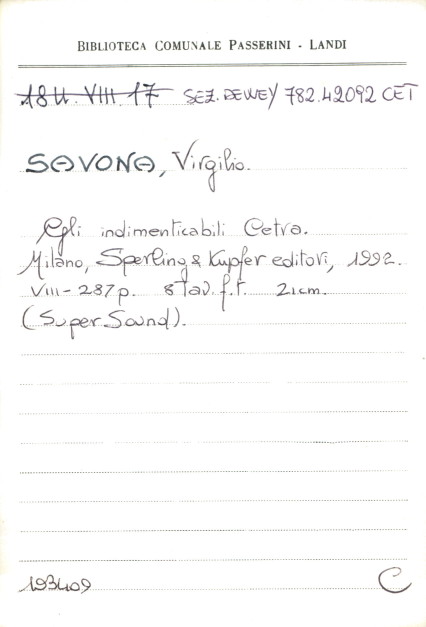 BIBLIOTECA COMUNALE PASSERINI - LANDI
18 U. VIII. 17 SEZ. DEWEY 782.42092 CET
SAVONA, Virgilio.
Gli indimenticabili Cetra.
Milano, Sperling & Kupfer editori, 1992.
VIII - 287 p. 8 tav. f.t. 21 cm.
(Super Sound).
193409 C